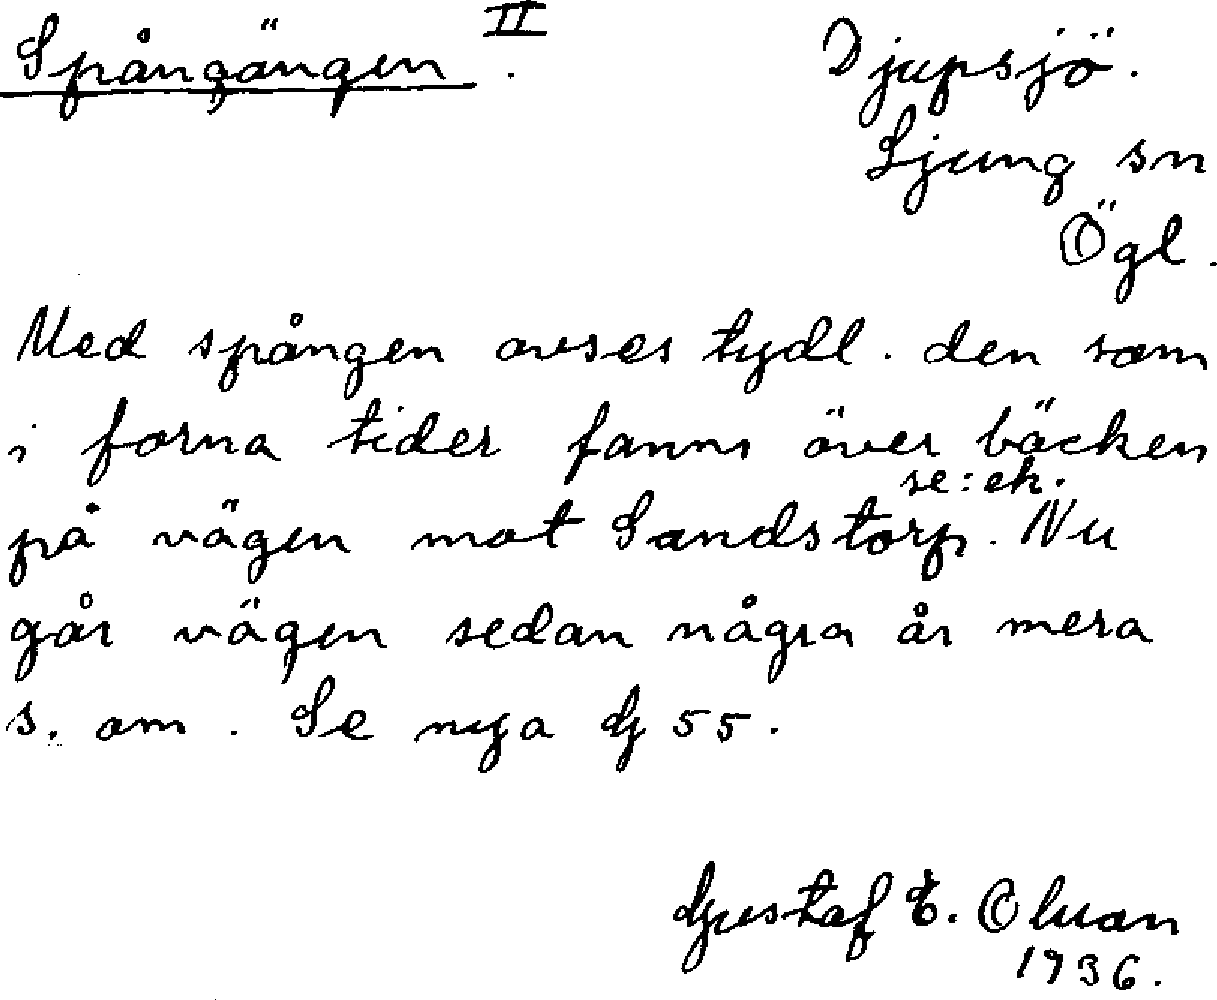 Spångängen II.
Djupsjö.
Ljung sn
Ögl.
Med spången avses tydl. den som
i forna tider fanns över bäcken
se: ek.
på vägen mot Sandstorp. Nu
går vägen sedan några år mera
s. om. Se nya G 55.
Gustaf E.
1936.